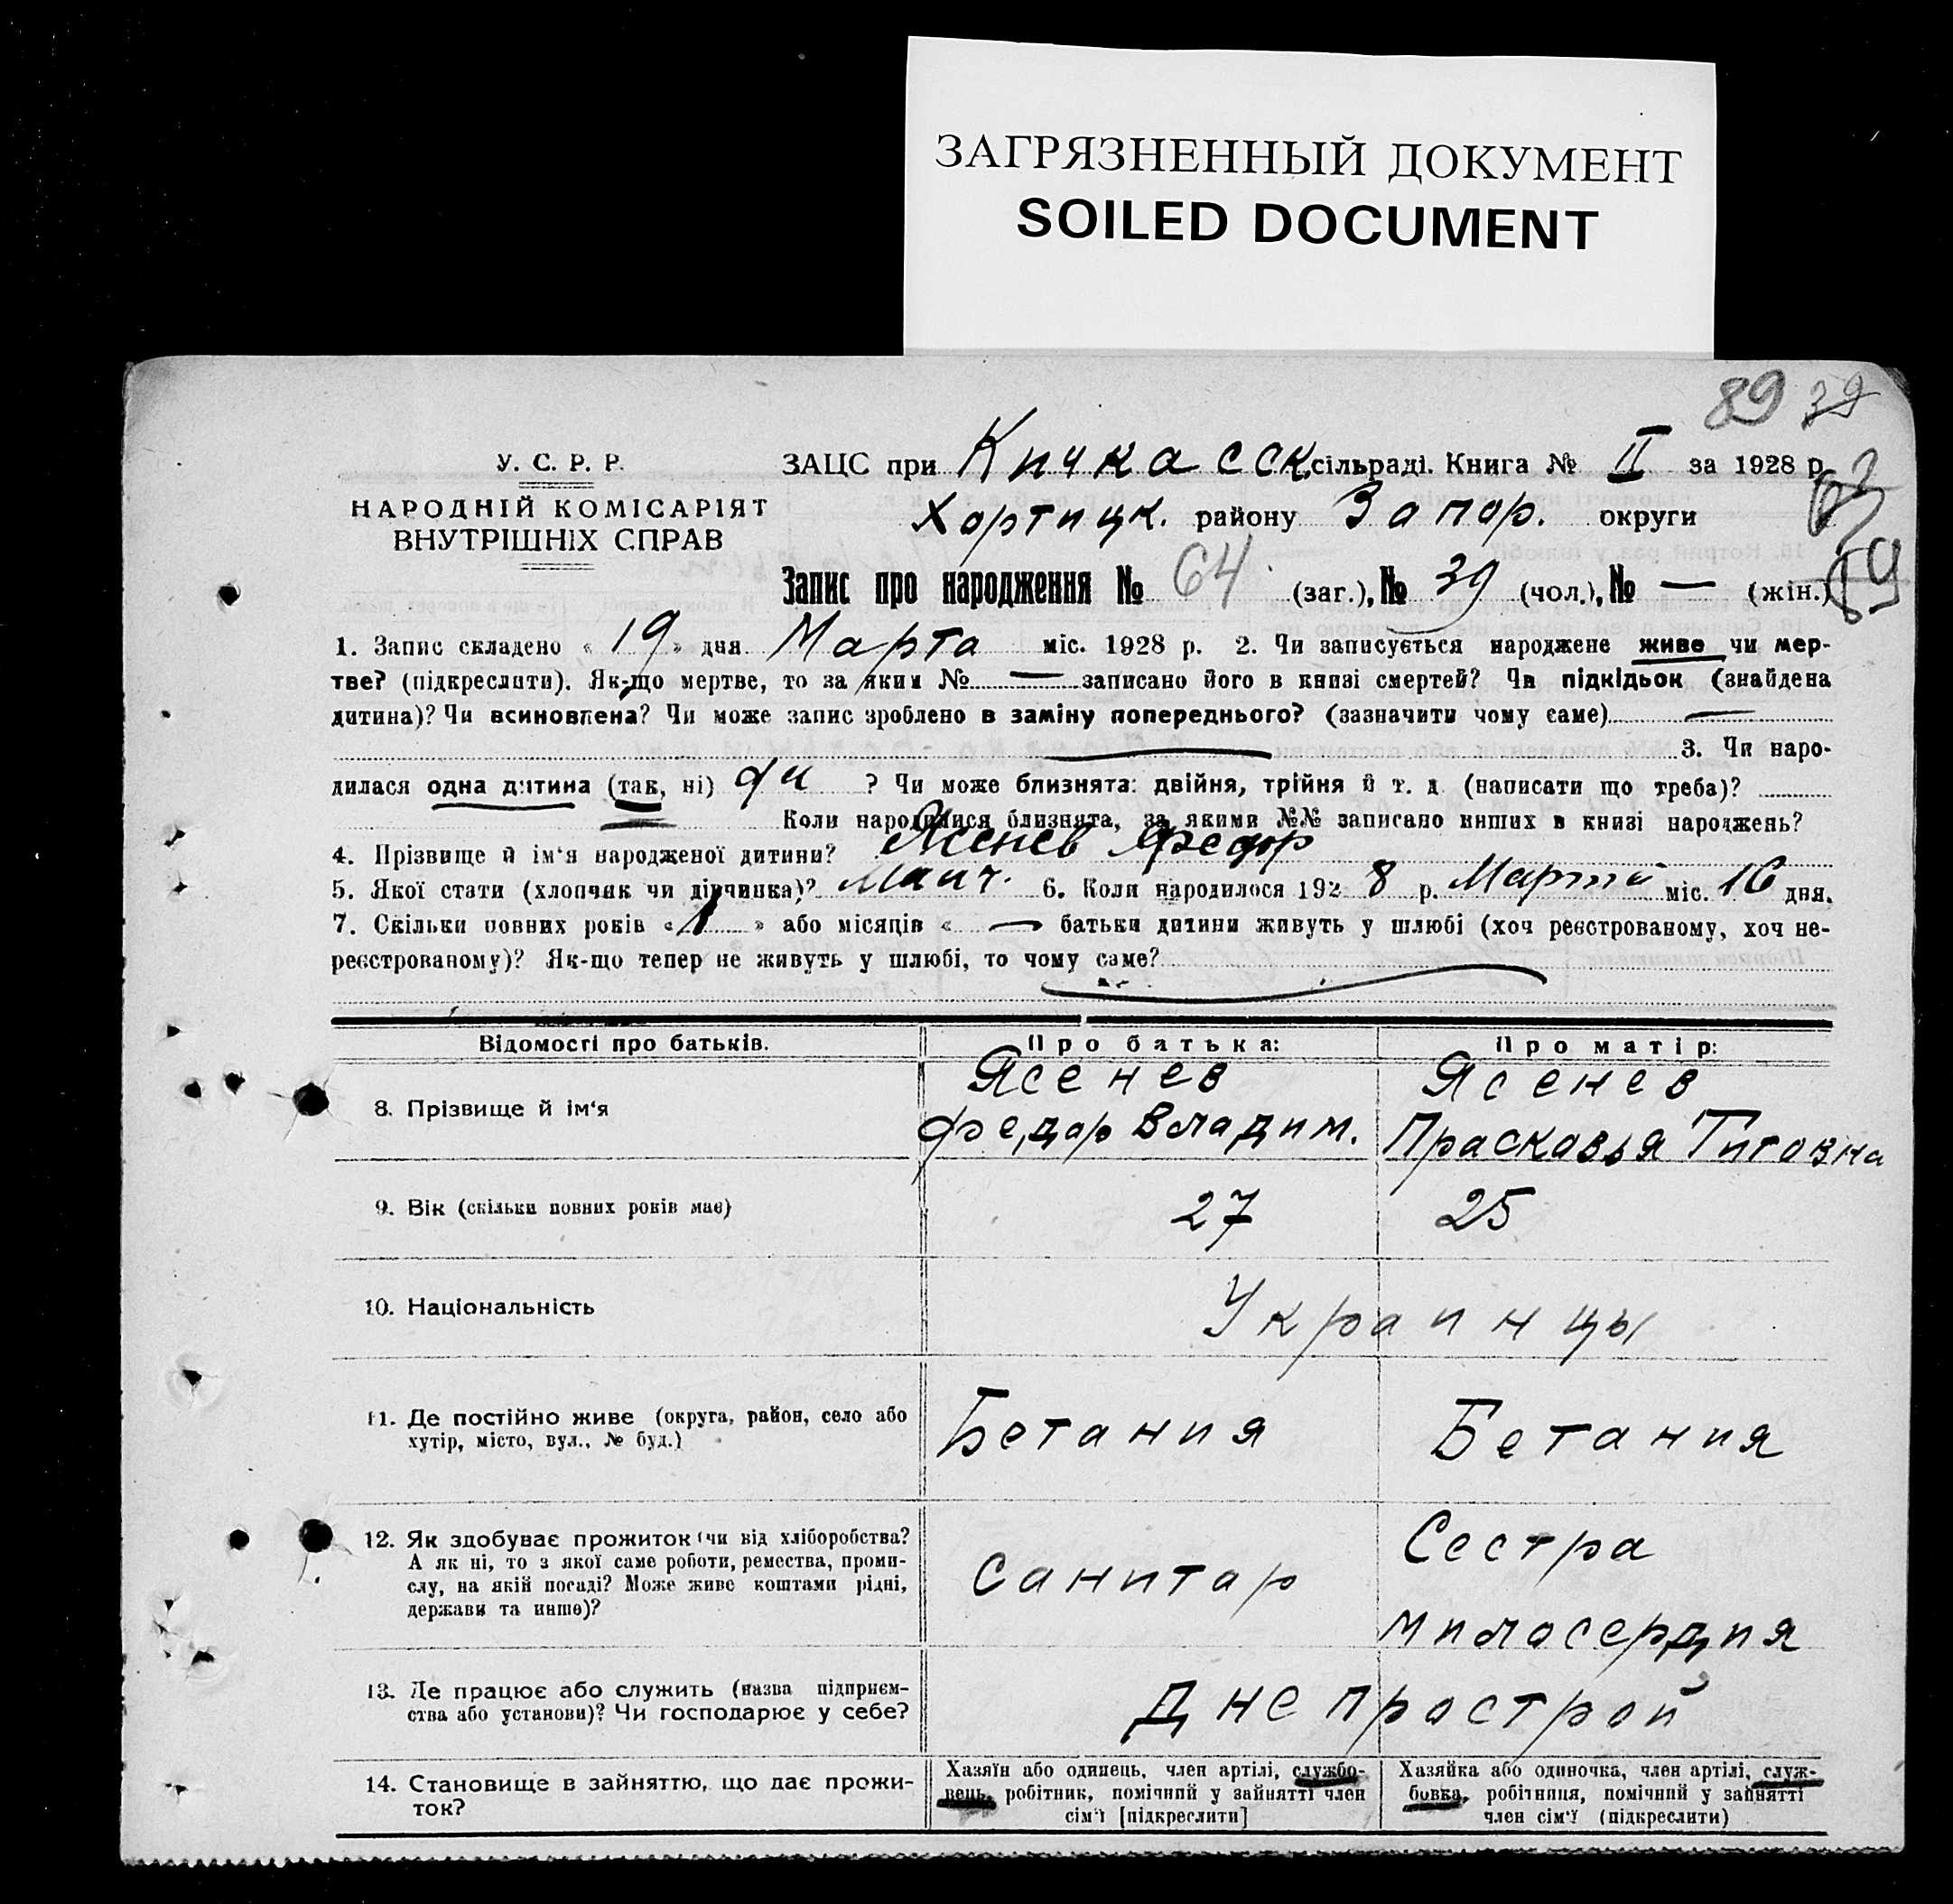 ЗАГРЯЗНЕННЫЙ ДОКУМЕНТ
SOILED DOCUMENT
89 39
У. С. Р. Р.
НАРОДНІЙ КОМІСАРІЯТ
ВНУТРІШНІХ СПРАВ
ЗАЦС при Кичкасск. сільраді. Книга № II за 1928 р.
Хортицк. району Запор. округи
Запис про народження № 64 (заг.), № 39 (чол.), № — (жін.)
1. Запис складено « 19 » дня Марта міс. 1928 р. 2. Чи записується народжене живе чи мер-
тве? (підкреслити). Як-що мертве, то за яким № — записано його в книзі смертей? Чи підкідьок (знайдена
дитина)? Чи всиновлена? Чи може запис зроблено в заміну попереднього? (зазначити чому саме) —
3. Чи наро-
дилася одна дитина (так, ні) ? Чи може близнята: двійня, трійня й т. д. (написати що треба)?
Коли народилися близнята, за якими №№ записано инших в книзі народжень?
4. Прізвище й ім'я народженої дитини? Ясенев Федор
5. Якої стати (хлопчик чи дівчинка)? 6. Коли народилося 1928 р. міс. 16 дня.
7. Скільки повних років « 1 » або місяців « — батьки дитини живуть у шлюбі (хоч реєстрованому, хоч не-
реєстрованому)? Як-що тепер не живуть у шлюбі, то чому саме?
Відомості про батьків. Про батька: Про матір:
8. Прізвище й ім'я
Ясенев
Федор Владим.
Ясенев
Прасковья Титовна
9. Вік (скільки повних років має) 27 25
10. Національність Украинцы
11. Де постійно живе (округа, район, село або
хутір, місто, вул., № буд.)
Бетания Бетания
12. Як здобуває прожиток (чи від хліборобства?
А як ні, то з якої саме роботи, ремества, проми-
слу, на якій посаді? Може живе коштами рідні,
держави та инше)?
Санитар
Сестра
милосердия
13. Де працює або служить (назва підприєм-
ства або установи)? Чи господарює у себе?
Днепрострой
14. Становище в зайняттю, що дає прожи-
ток?
Хазяїн або одинець, член артілі, службо-
вець, робітник, помічний у зайнятті член
сім'ї [підкреслити]
Хазяйка або одиночка, член артілі, служ-
бовка, робітниця, помічний у зайнятті
член сім'ї (підкреслити)